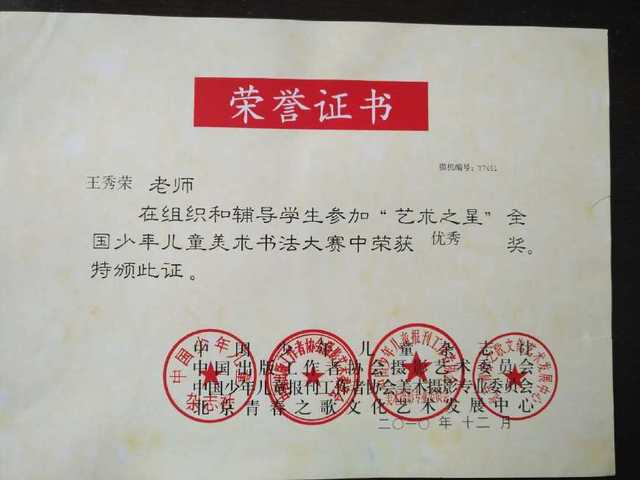 荣誉证书
微机编号：Y7451
王秀荣 老师
在组织和辅导学生参加“艺术之星”全
国少年儿童美术书法大赛中荣获 优秀 奖。
特颁此证。
中国少年儿童杂志社
中国出版工作者协会摄影艺术委员会
中国少年儿童报刊工作者协会美术摄影专业委员会
北京青春之歌文化艺术发展中心
二〇一〇年十二月